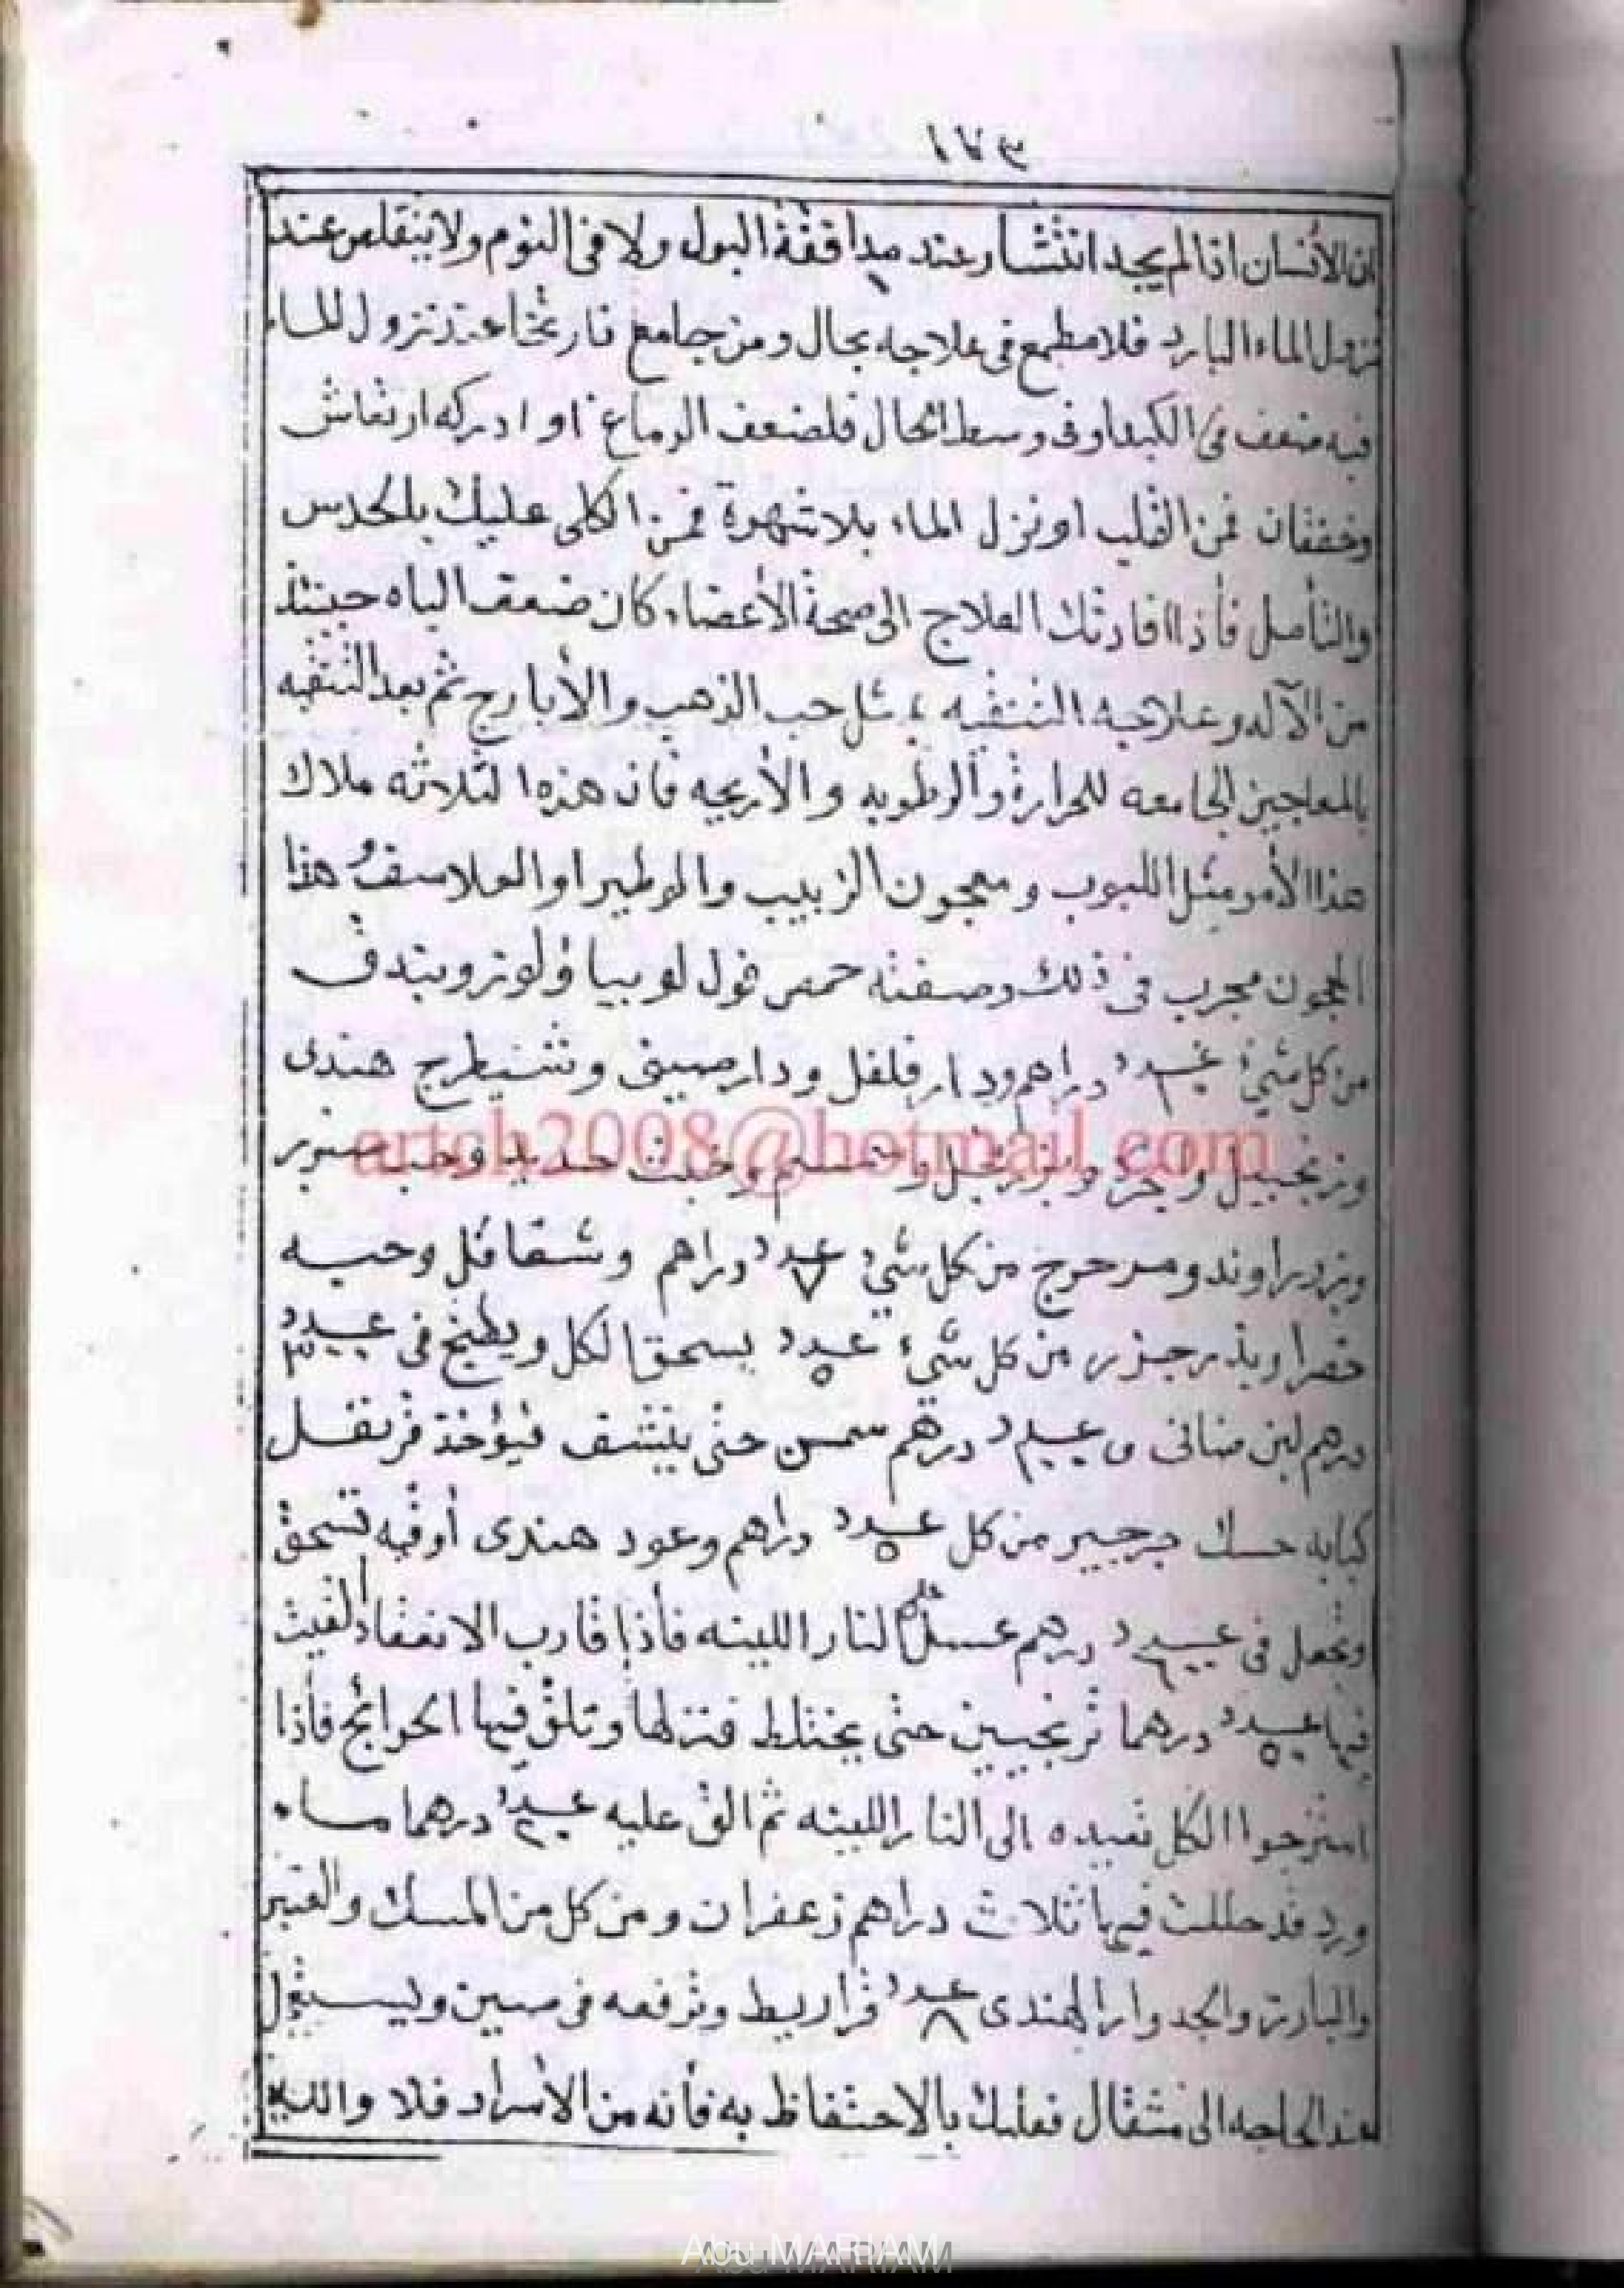 ١٧٣
ان الأنسان اذا لم يجد انتشار عند مدافقة البول ولا في النوم ولا يتقلص عند
نزول الماء البارد فلا مطمع في علاجه بحال ومن جامع فارتخا عند نزول الماء
فيه ضعف في الكبد او في وسط الحال فلضعف الدماغ او ادركه ارتعاش
وخفقان فمن القلب او نزل الماء بلا شهوة فمن الكلى عليك بالحدس
والتأمل فأذا افادتك العلاج الى صحة الأعضاء كان ضعف الباه حينئذ
من الآله وعلاجه التنقيه بمثل حب الذهب والأيارج ثم بعد التنقيه
بالمعاجين الجامعه للحرارة والرطوبه والأريحيه فان هذه الثلاثه ملاك
هذا الأمر مثل اللبوب ومعجون الزبيب والعلاسف هذا
المجون مجرب في ذلك وصفته حمص فول لوبيا ولوز وبندق
من كل شيء عدد دراهم ودار فلفل ودارصيني وشيطرج هندى
artch2008@hotmail.com
وزنجبيل وسمسم وخبث حديد وحب صنوبر
وزراوند ومدحرج من كل شيء عدد ٧ دراهم وشقاقل وحبه
خضرا وبذر جزر من كل شيء عدد ٥ يسحق الكل ويطبخ في عدد ٣٠٠
درهم لبن ضانى و عدد درهم سمن حتى ينشف فيؤخذ قرنفل
كبابه حسك جرجير من كل عدد ٥ دراهم وعود هندى أوقيه تسحق
وتجعل في عدد درهم عسل على النار اللينه فأذا قارب الانعقاد القيت
فيها عدد درهما ترنجبين حتى يختلط فتنزلها وتلق فيها الحوائج فأذا
امتزجوا الكل تعيده الى النار اللينه ثم الق عليه عدد درهما ماء
ورد قد حللت فيها ثلاث دراهم زعفران ومن كل من المسك والعنبر
والبادزهر والجدوار الهندى عدد ٨ قراريط وترفعه في صين ويستعمل
عند الحاجه الى مثقال فعليك بالاحتفاظ به فأنه من الأسرار فلا والله
Abu MARIAM